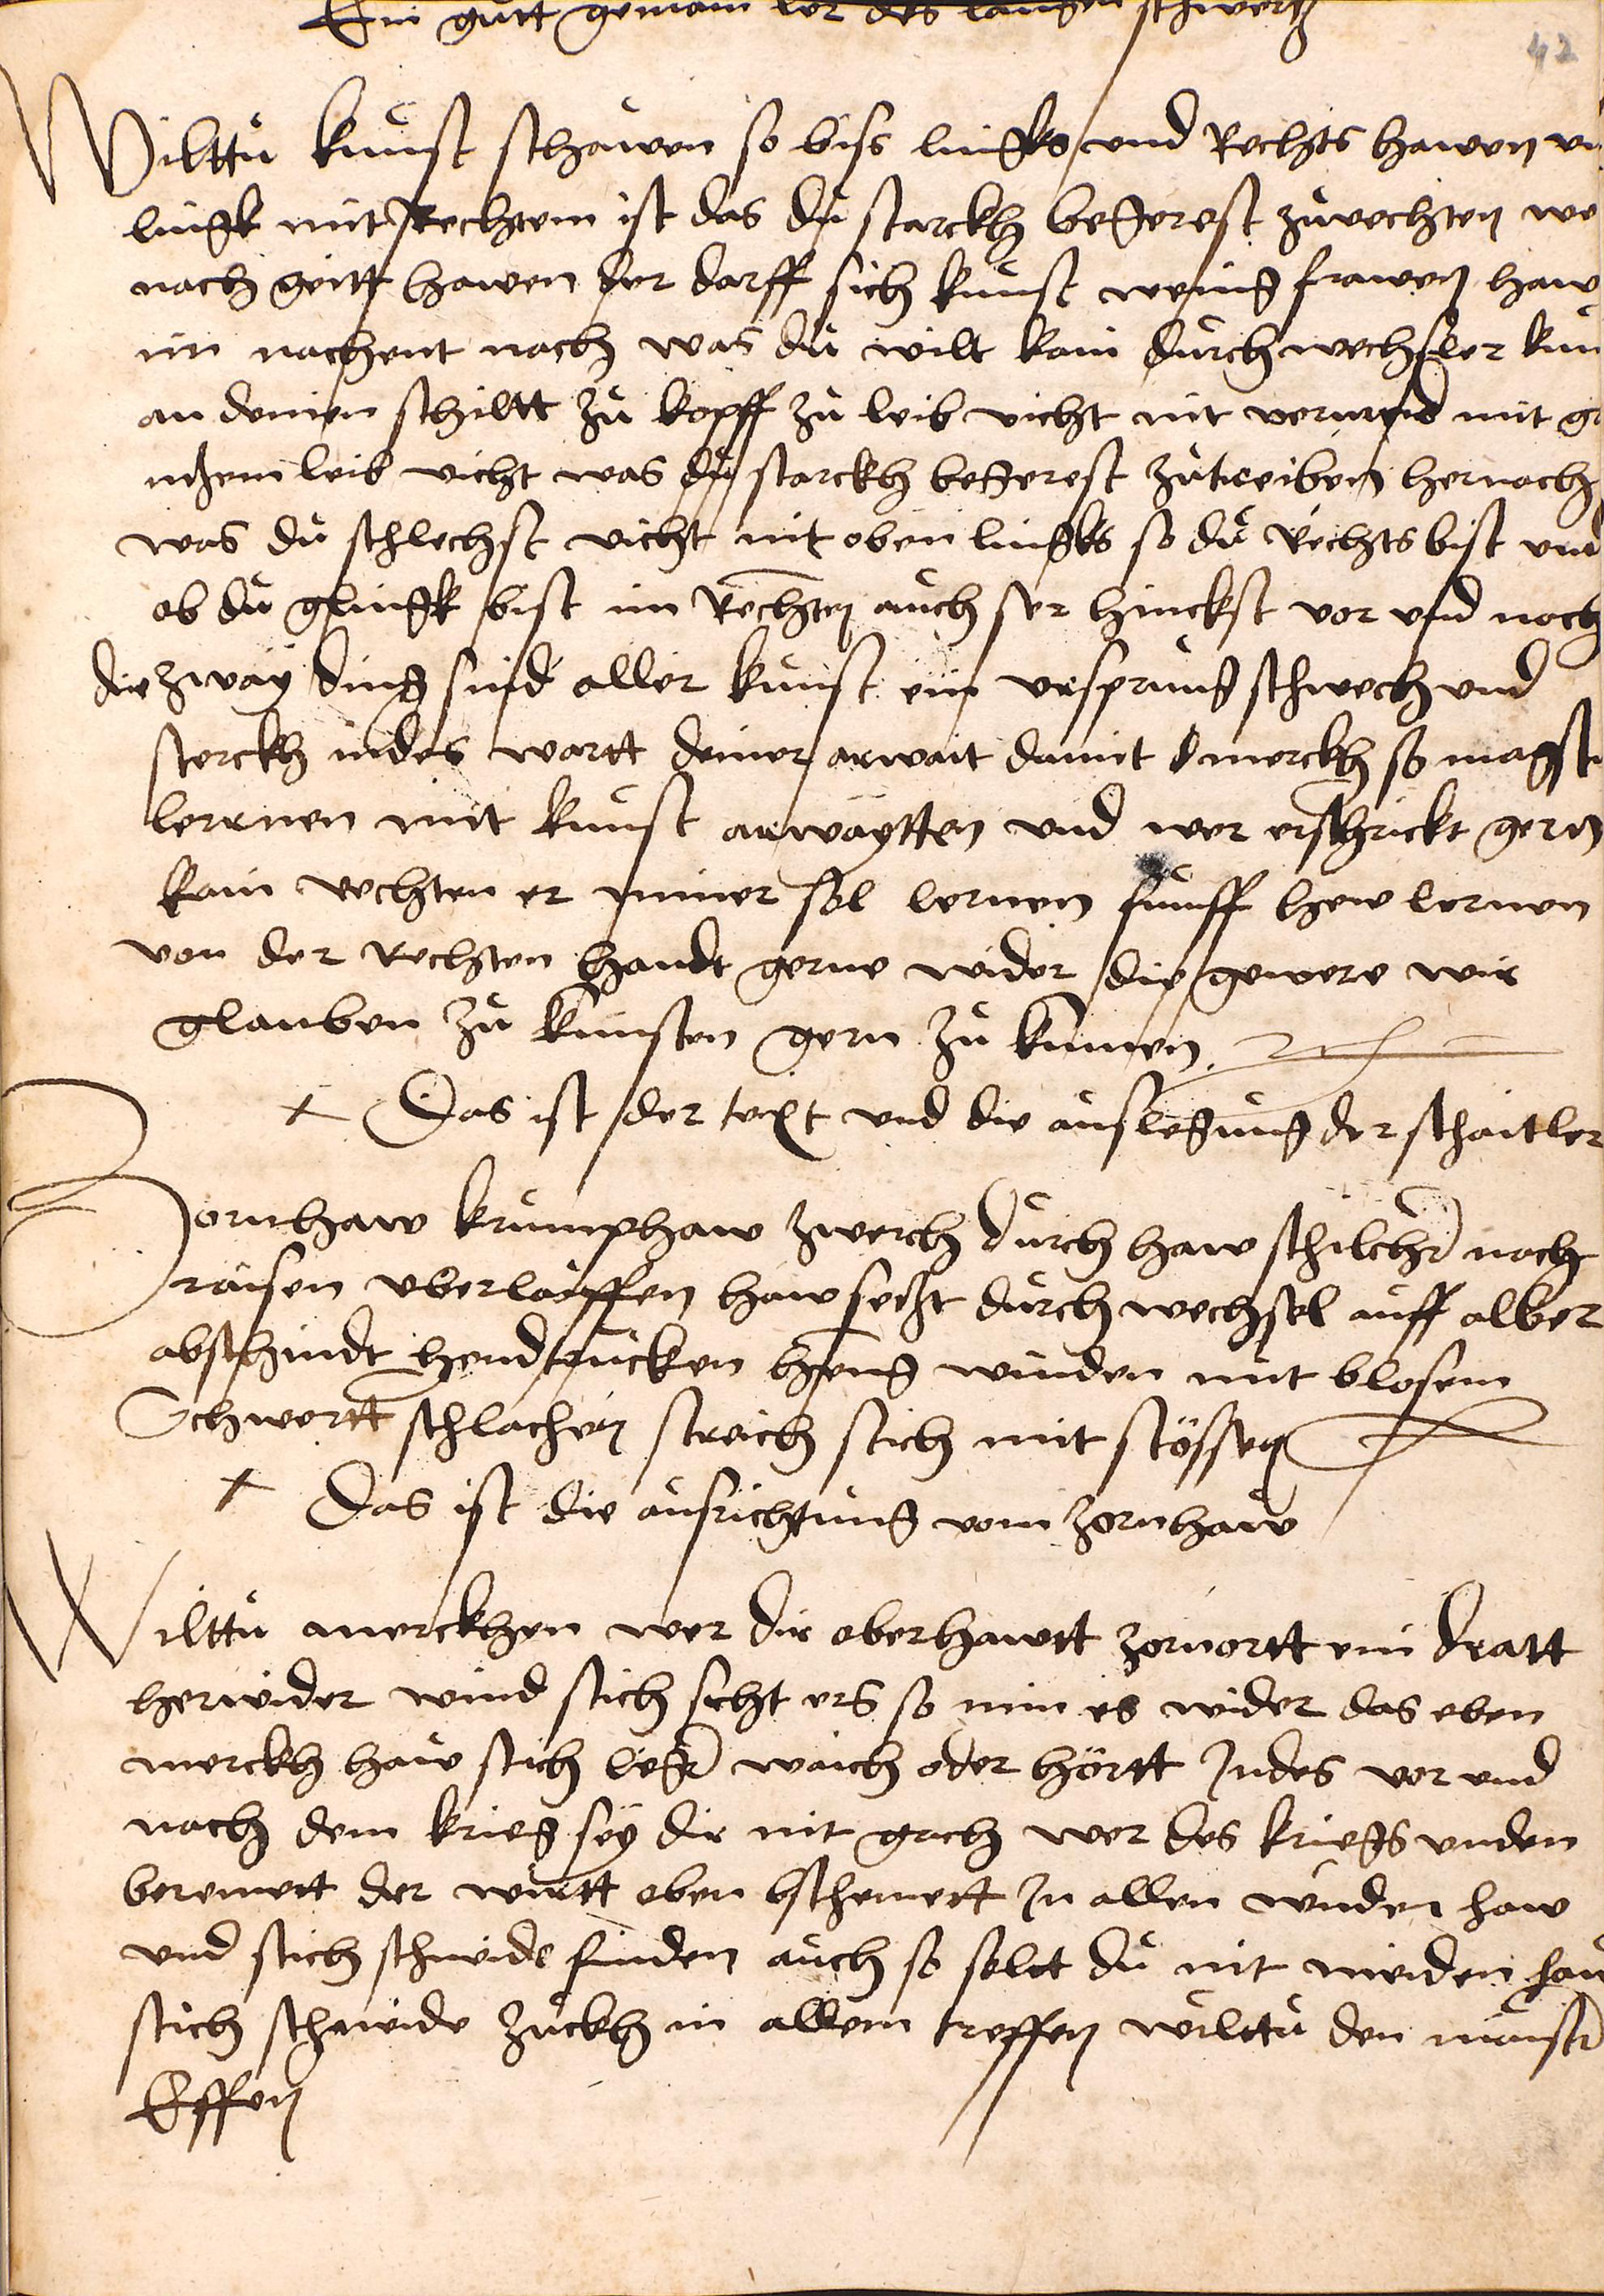 Ein gutt gemain ler des langen schwertz
42
Wilttu kunst schawen so biss lingks und Rechts hawen
lingk mit Rechtem ist das du starckh begerest zuvechten
nach geitt hawen der darff sich kunst wenig frawen haw
im nachent nach was du wilt kain durchwechsler kum
an deinen schiltt zu kopff zu leib vicht nit vermeid mit
leib vicht was du starckh begerest zutreiben hernach
was du schlechst vicht nit oben lingks so du Rechts bist und
ob du glingk bist im Rechten auch ser hinckst vor und nach
die zway ding sind aller kunst ein ursprung schwech und
sterckh indes wartt deiner arwait damit merckh so magstu
lerrnen mit kunst arwaytten und wer erschrickt gern
kain vechten er nimer sol lernen funff hew lernen
von der Rechten handt gerne wider die gewere wir
glauben zu kunsten gern zu kumen
Das ist der text und die auslegung der schaitler
Zornhaw krumphaw zwerch durch haw schilchr nach
raisen uberlauffen haw setzt durch wechsel auff alber
abschindt hend trucken heng winden mit blosem
Schwertt schlachen streich stich mit stössen
Das ist die ausrichtung vom zornhaw
Wilttu merckhen wer dir oberhawtt zornortt ein dratt
herwider wind stich secht ers so nim es wider das eben
merckh haw stich leger waich oder hörtt Indes vor und
nach dem krieg sey dir nit gach wer des kriegs unden
beremett der wirtt oben bschemett In allen winden haw
und stich schneide finden auch so solt du nit meiden haw
stich schneide zuckh in allem treffen wilttu den maister
Effen